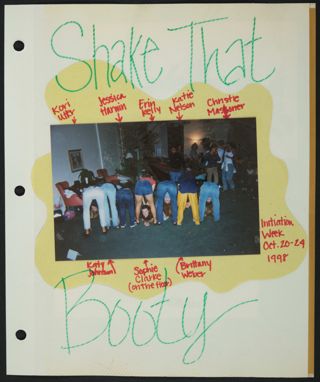 Shake That
Kori
Jessica
Harmin
Erin
Kelly
Katie
Nelson
Christie
Initiation
Week
Oct. 20-24
1998
Katy
Johnson
Sophie
Clarke
(on the floor)
Brittany
Weber
Booty